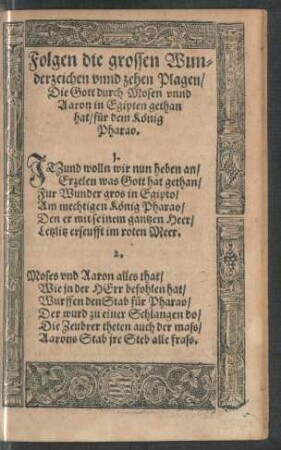 Folgen die grossen Wun-
derzeichen vnnd zehen Plagen/
Die Gott durch Mosen vnnd
Aaron in Egipten gethan
hat/für dem König
Pharao.
1.
JTZund wolln wir nun heben an/
Erzelen was Gott hat gethan/
Fur Wunder gros in Egipto/
Am mechtigen König Pharao/
Den er mit seinem gantzen Heer/
Letzlitz erseufft im roten Meer.
2.
Moses vnd Aaron alles that/
Wie jn der HErr befohlen hat/
Wurffen den Stab für Pharao/
Der wurd zu einer Schlangen do/
Die Zeubrer theten auch der mass/
Aarons Stab jre Steb alle frass.